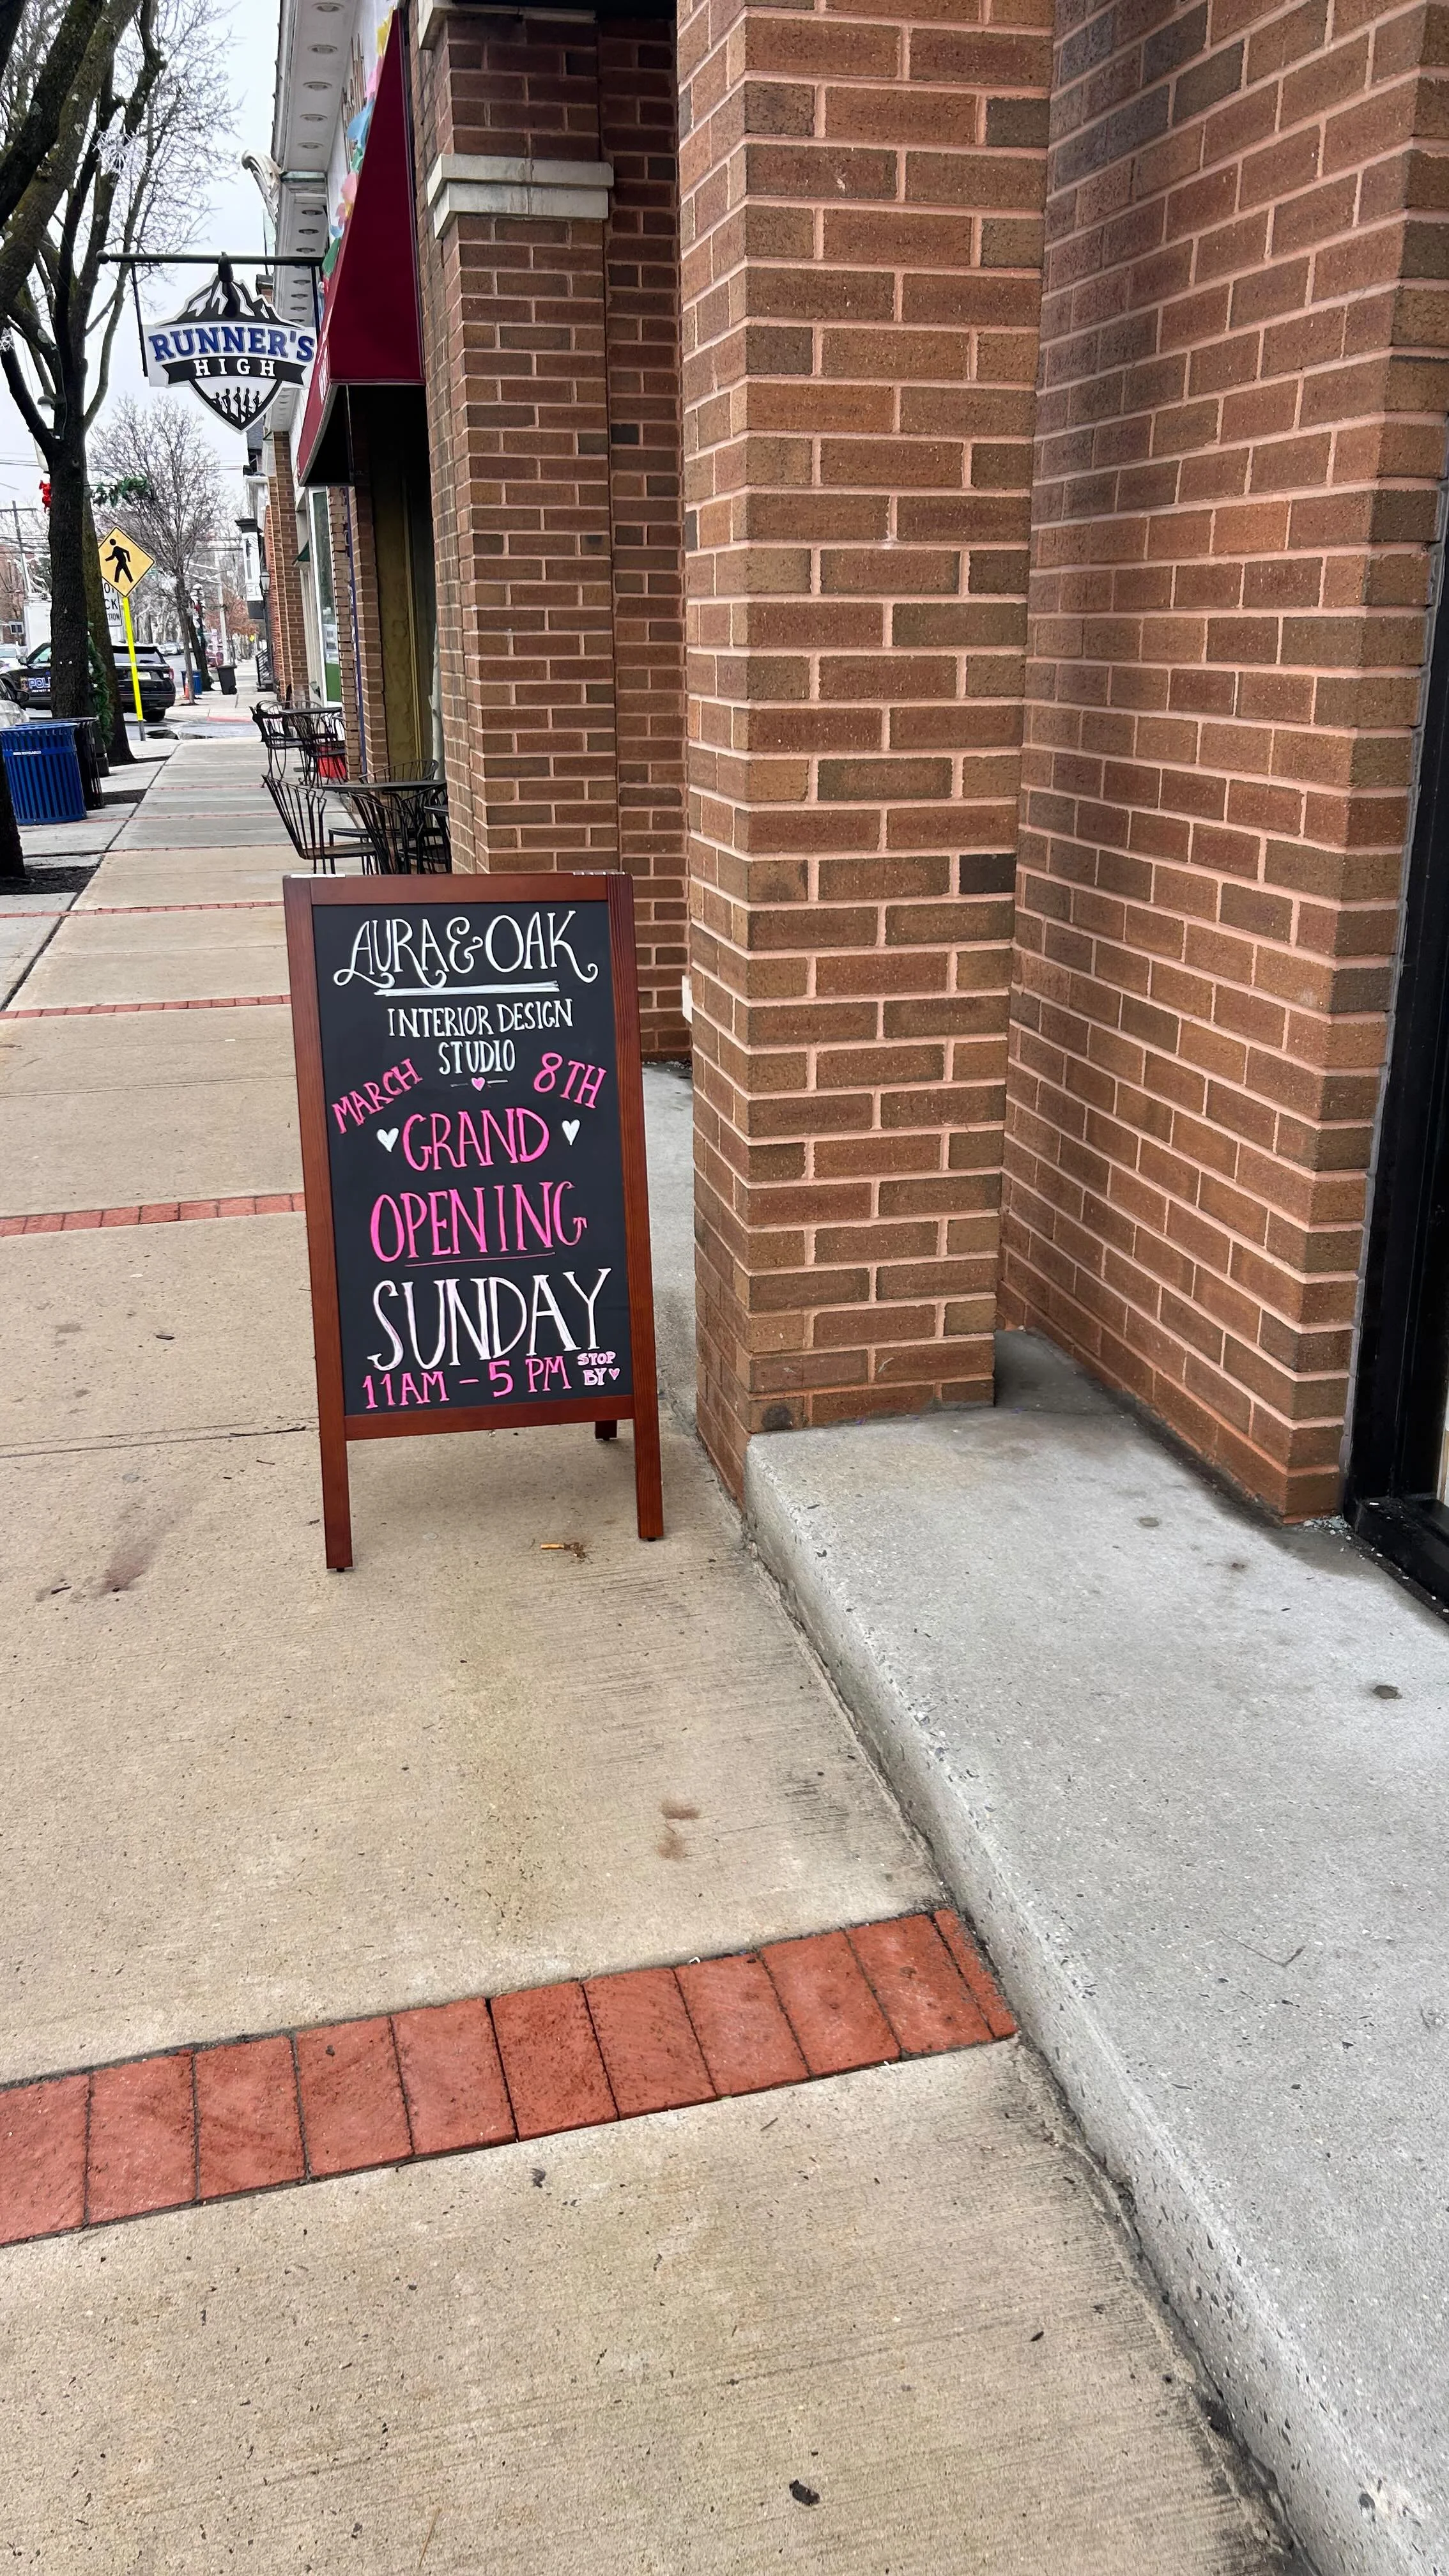 RUNNER'S
HIGH
AURA & OAK
INTERIOR DESIGN
STUDIO
MARCH 8TH
GRAND
OPENING
SUNDAY
11AM - 5 PM STOP
BY